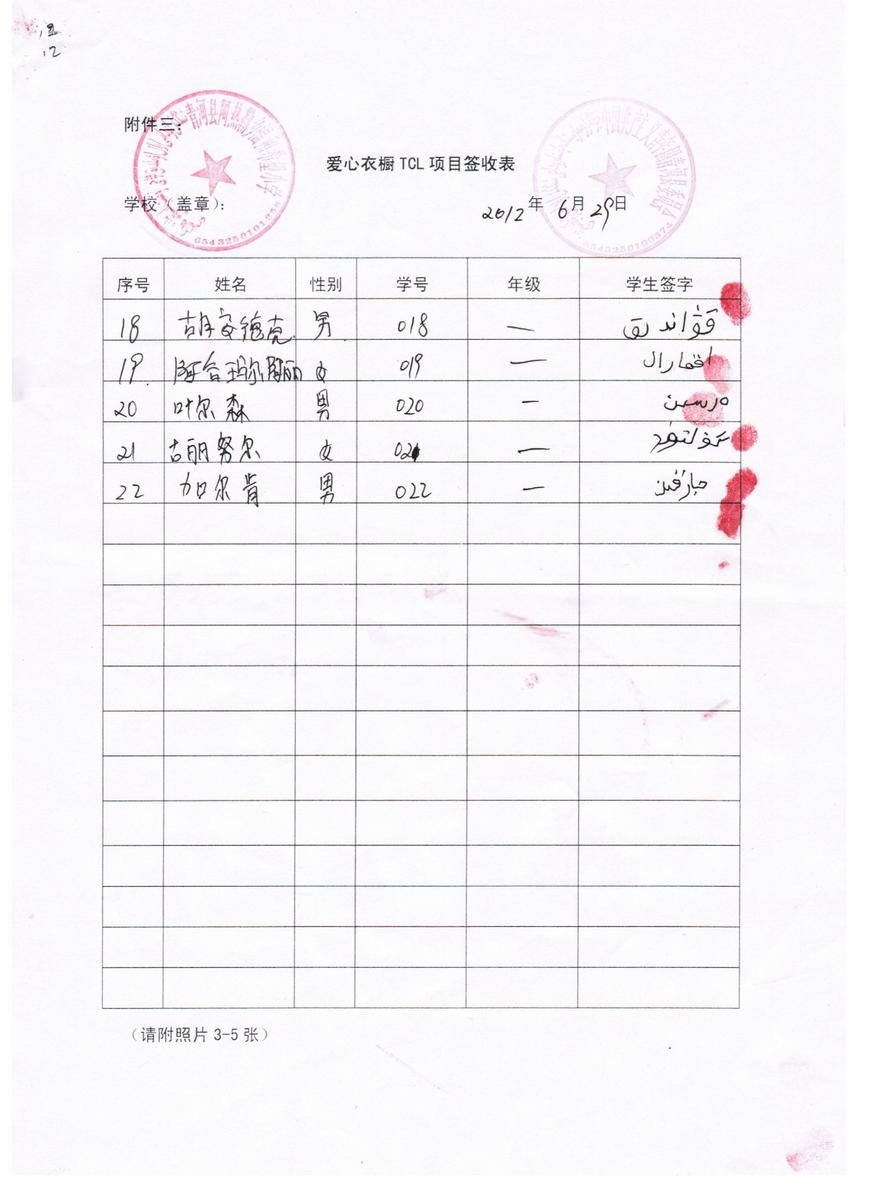 附件三：
爱心衣橱 TCL 项目签收表
学校（盖章）：
2012年 6月29日
6543250101258
6543250100374
序号 姓名 性别 学号 年级 学生签字
18 胡安德克 男 018 一 قۋاندىق
19 阿合玛尔 女 019 一 اقمارال
20 叶尔森 男 020 一 ەرسىن
21 古丽努尔 女 021 一
22 加尔肯 男 022 一 جارقىن
（请附照片 3-5 张）